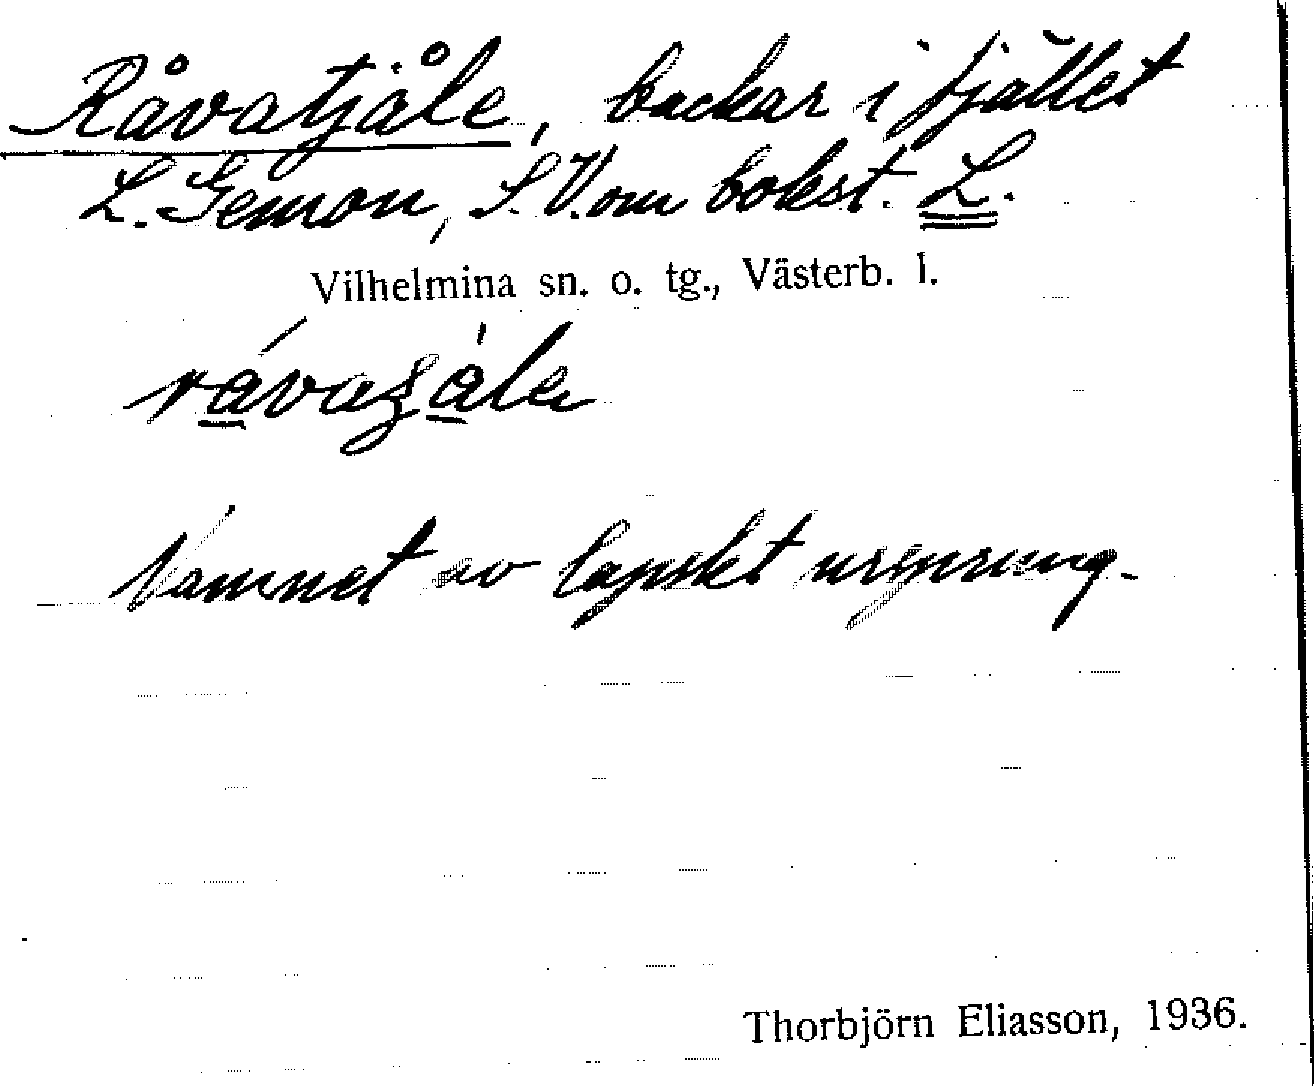 Råvatjåle, backar i fjället
L. Gemon, S.V. om bokst. L.
Vilhelmina sn. o. tg., Västerb. l.
Namnet av lapskt ursprung.
Thorbjörn Eliasson, 1936.